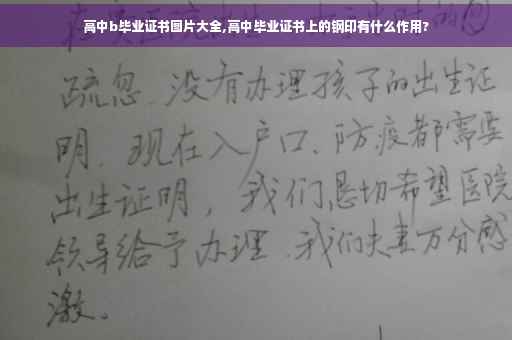 高中b毕业证书图片大全,高中毕业证书上的钢印有什么作用?
疏忽、没有办理孩子的出生证
明、现在入户口、防疫都需要
出生证明，我们恳切希望医院
领导给予办理、我们夫妻万分感
激。